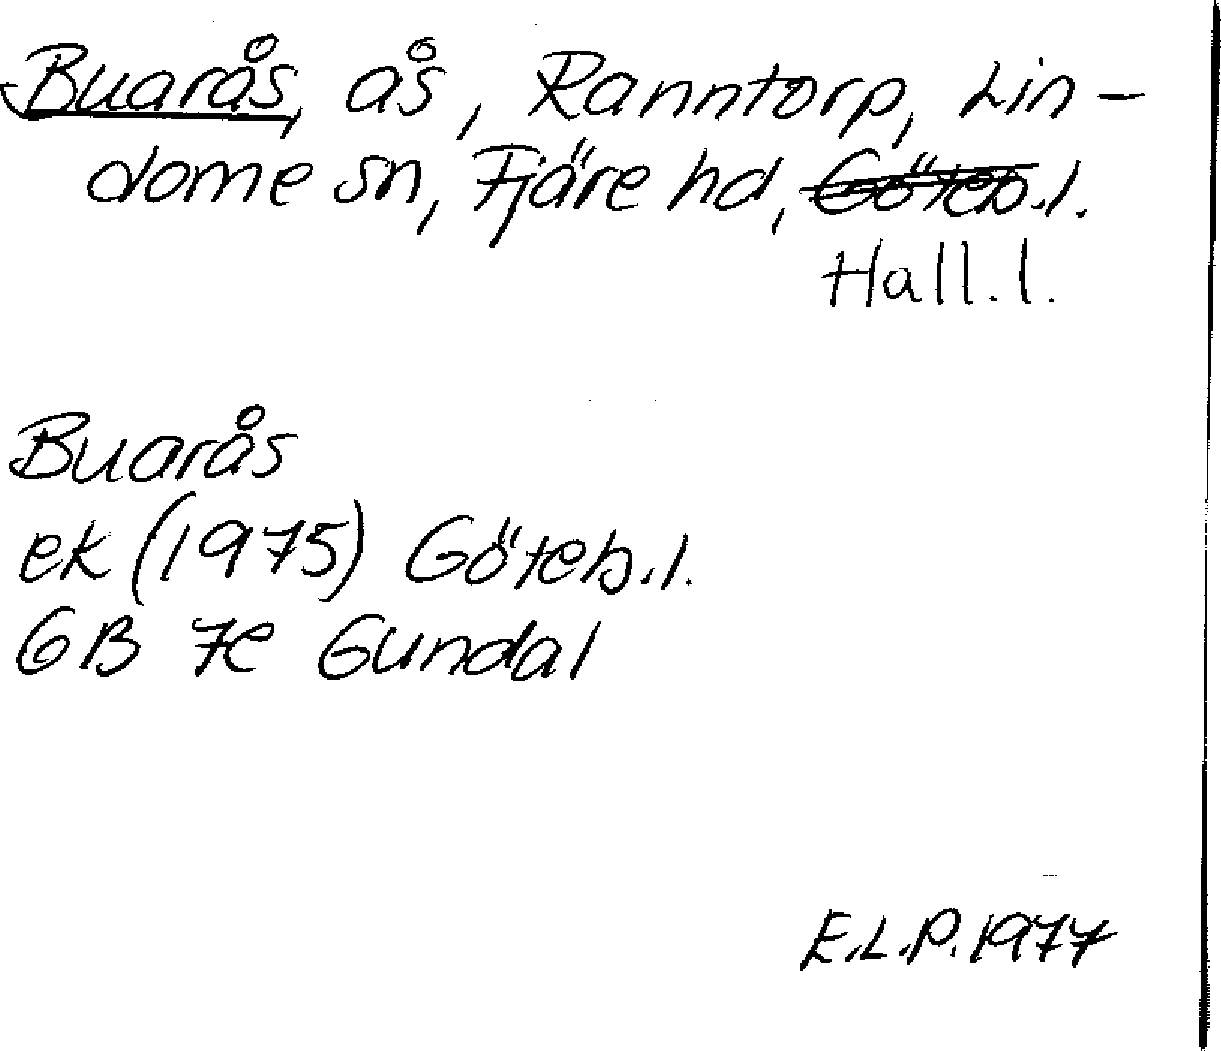 Buarås, ås, Ranntorp, Lin-
dome sn, Fjäre hd, Göteb.l.
Hall.l.
Buarås
ek (1975) Göteb.l.
GB 7e Gundal
E.L.P. 1977